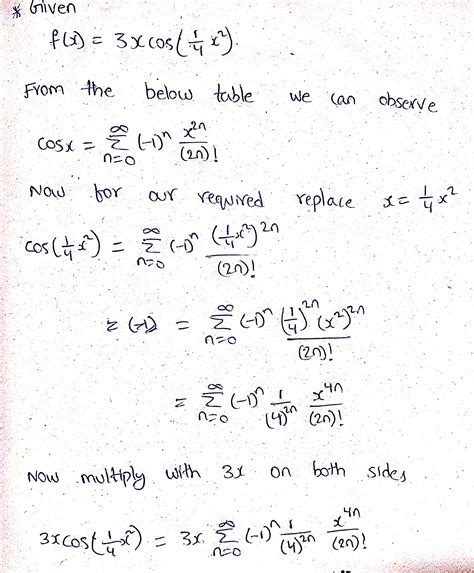 * Given
f(x) = 3x cos(1/4 x²).
From the below table we can observe
cosx = ∑_{n=0}^{∞} (-1)ⁿ x^{2n}/(2n)!
Now for our required replace x = 1/4 x²
cos(1/4 x²) = ∑_{n=0}^{∞} (-1)ⁿ (1/4 x²)^{2n}/(2n)!
= ∑_{n=0}^{∞} (-1)ⁿ (1/4)^{2n} (x²)^{2n}/(2n)!
= ∑_{n=0}^{∞} (-1)ⁿ 1/(4)^{2n} x^{4n}/(2n)!
Now multiply with 3x on both sides
3x cos(1/4 x²) = 3x. ∑_{n=0}^{∞} (-1)ⁿ 1/(4)^{2n} x^{4n}/(2n)!